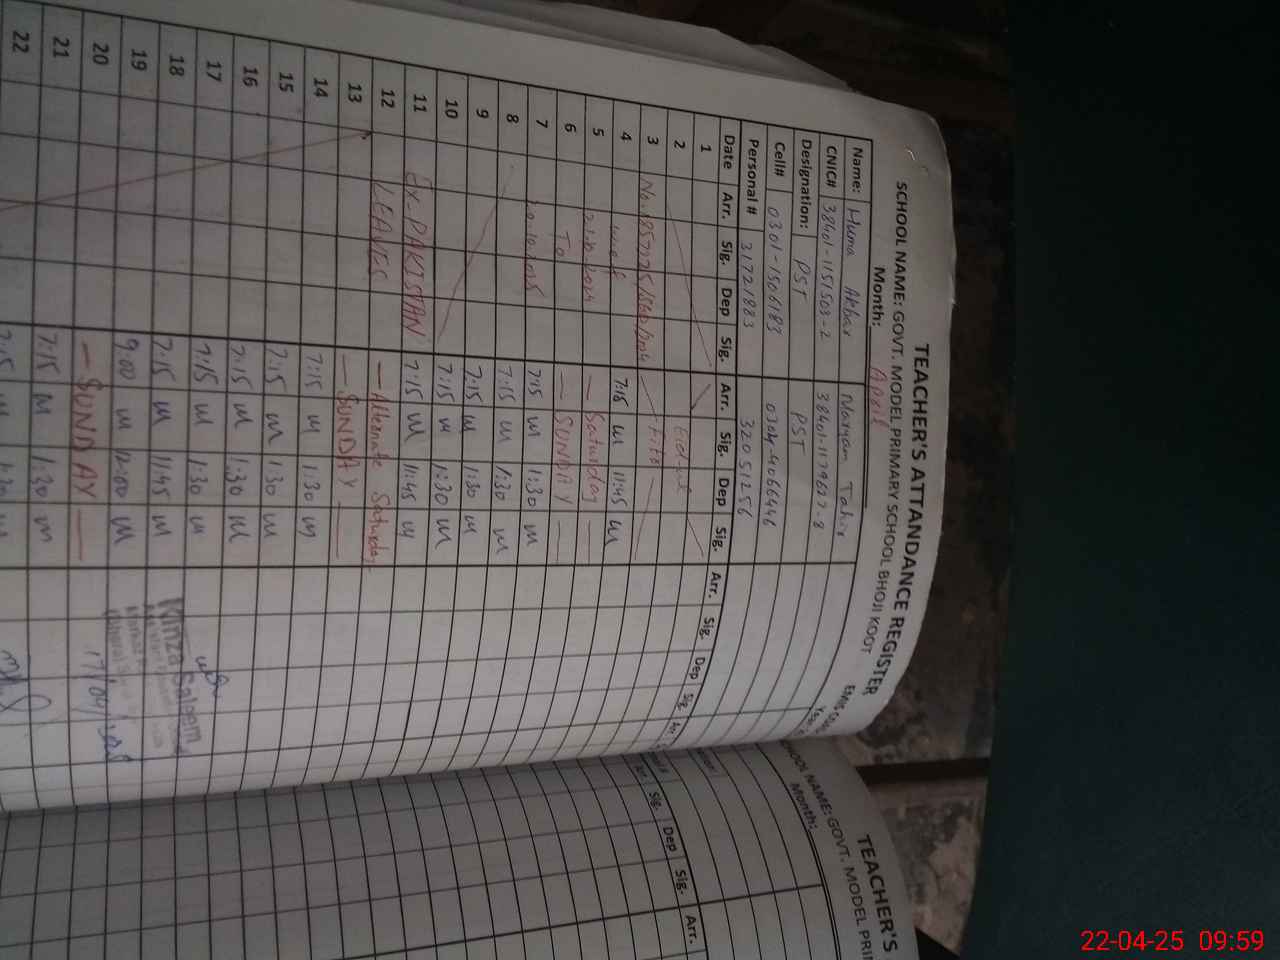 TEACHER'S ATTANDANCE REGISTER
SCHOOL NAME: GOVT. MODEL PRIMARY SCHOOL BHOJI KOOT
Month: April
Name: Huma Akbar Maryam Tahir
CNIC# 38401-1151503-2 38401-1179627-8
Designation: PST PST
Cell# 0301-1506183 0304-4066446
Personal # 31721883 32051256
Date Arr. Sig. Dep Sig. Arr. Sig. Dep Sig. Arr. Sig. Dep Sig. Arr
1
2 Eid-ul
3 Fitr
4 w.e.f 7:15 M 11:45 M
5 — Saturday —
6 To — SUNDAY —
7 7:15 M 1:30 M
8 7:15 M 1:30 M
9 7:15 M 1:30 M
10 7:15 M 1:30 M
11 EX-PAKISTAN 7:15 M 11:45 M
12 LEAVES — Alternate Saturday-
13 — SUNDAY —
14 7:15 M 1:30 M
15 7:15 M 1:30 M
16 7:15 M 1:30 M
17 7:15 M 1:30 M
18 7:15 M 11:45 M
19 9:00 M 12:00 M
20 — SUNDAY —
21 7:15 M 1:30 M
22 7:15 M 1:30 M
Kinza Saleem
17/04/
TEACHER'S
SCHOOL NAME: GOVT. MODEL PRI
Month:
Sig. Dep Sig. Arr.
22-04-25 09:59